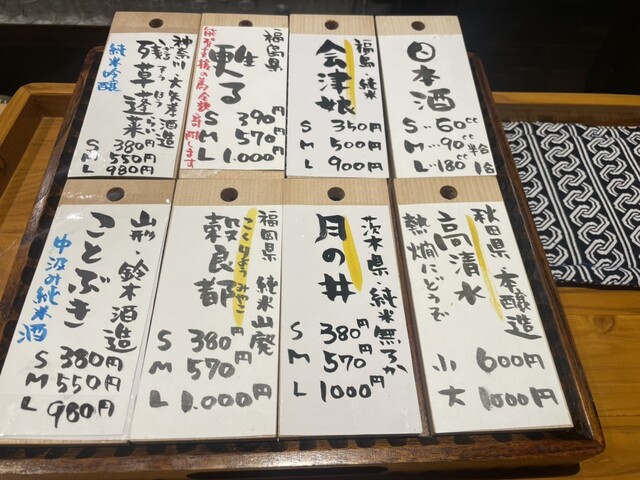 日本酒
S 60cc
M 90cc 半合
L 180cc 1合
福島・純米
会津娘
S 350円
M 500円
L 900円
福島県
甦る
S 390円
M 570円
L 1.000円
神奈川・大矢孝酒造
ざる そう ほう らい
残草蓬莱
純米吟醸
S 380円
M 550円
L 980円
秋田県・本醸造
高清水
熱燗にどうぞ
小 600円
大 1000円
茨木県 純米無ろか
月の井
S 380円
M 570円
L 1000円
福岡県 純米山廃
こくりょうみやこ
穀良都
S 380円
M 570円
L 1.000円
山形・鈴木酒造
ことぶき
中汲み純米酒
S 380円
M 550円
L 980円